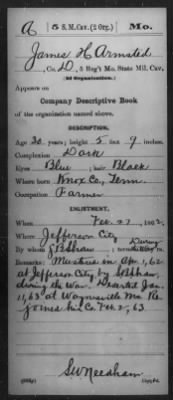 A | 5 S. M. Cav. (2 Org.) | Mo.
James H Armsted
, Co. D, 5 Reg't Mo. State Mil. Cav.
(2d Organization.)
Appears on
Company Descriptive Book
of the organization named above.
DESCRIPTION.
Age 20 years; height 5 feet 9 inches.
Complexion Dark
Eyes Blue; hair Black
Where born Knox Co, Tenn.
Occupation Farmer
ENLISTMENT.
When Feb. 27, 1862.
Where Jefferson City
By whom; term During
Remarks: Mustered in Apr 1, 62
at Jefferson City by
during the War. Deserted Jan.
11, 63 at Waynesville Mo. Re
joined his Co. Feb 2, 63.
SW Needham
Copyist.